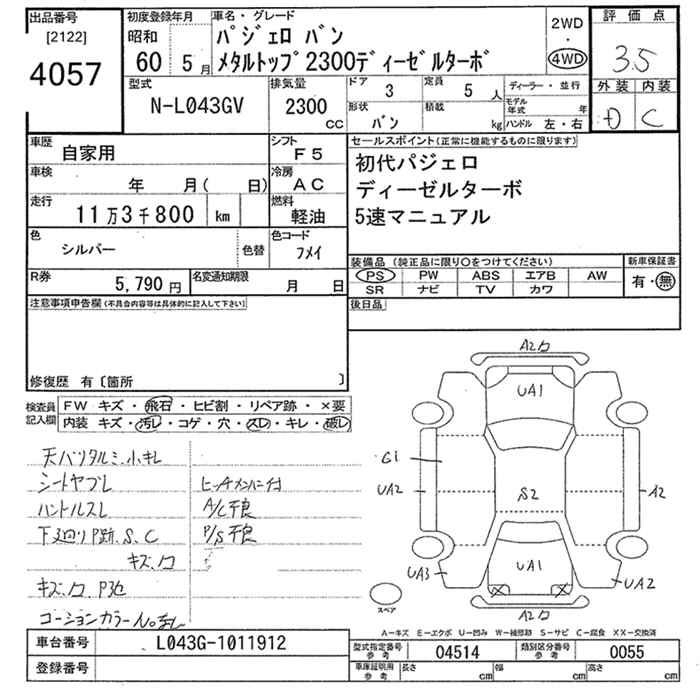 出品番号
[2122]
4057
初度登録年月
昭和
60 5月
車名・グレード
パジェロ バン
メタルトップ2300ディーゼルターボ
2WD
・
4WD
評価点
3.5
外装 内装
D C
型式
N-L043GV
排気量
2300
CC
ドア
3
定員
5 人
形状
バン
積載
kg
ディーラー・並行
モデル年式 年
ハンドル 左・右
車歴
自家用
シフト
F5
車検
年 月( 日)
冷房
AC
走行
11万3千800 km
燃料
軽油
色
シルバー
色替
色コード
フメイ
R券
5,790 円
名変通知期限
月 日
セールスポイント(正常に機能するものに限ります)
初代パジェロ
ディーゼルターボ
5速マニュアル
装備品 (純正品に限り○をつけてください)
PS PW ABS エアB AW
SR ナビ TV カワ
新車保証書
有・無
後日品
注意事項申告欄(不具合内容等は具体的に記入して下さい)
修復歴 有〔箇所 〕
検査員記入欄
FW キズ・飛石・ヒビ割・リペア跡・×要
内装 キズ・汚レ・コゲ・穴・スレ・キレ・破レ
天バリタルミ、小キレ
シートヤブレ
ハンドルスレ
下廻りP跡、S、C
キズ、凹
キズ、凹、P他
コーションカラーNo無し
A/C不良
P/S不良
A2凹
UA1
G1
UA2
S2
A2
UA1
UA3
UA2
A2凹
スペア
A-キズ E-エクボ U-凹み W-補修跡 S-サビ C-腐食 XX-交換済
車台番号
L043G-1011912
登録番号
型式指定番号
参考
04514
類別区分番号
参考
0055
車庫証明用
参考
長さ cm
幅 cm
高さ cm